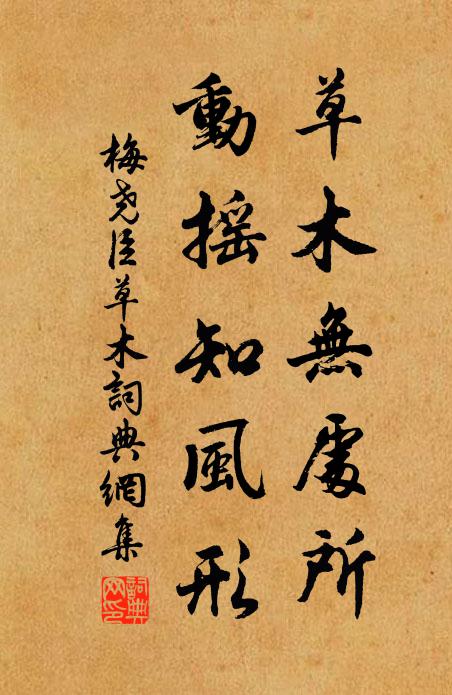 草木無處所
動搖知風形
梅堯臣草木詞典網集
詞典网印